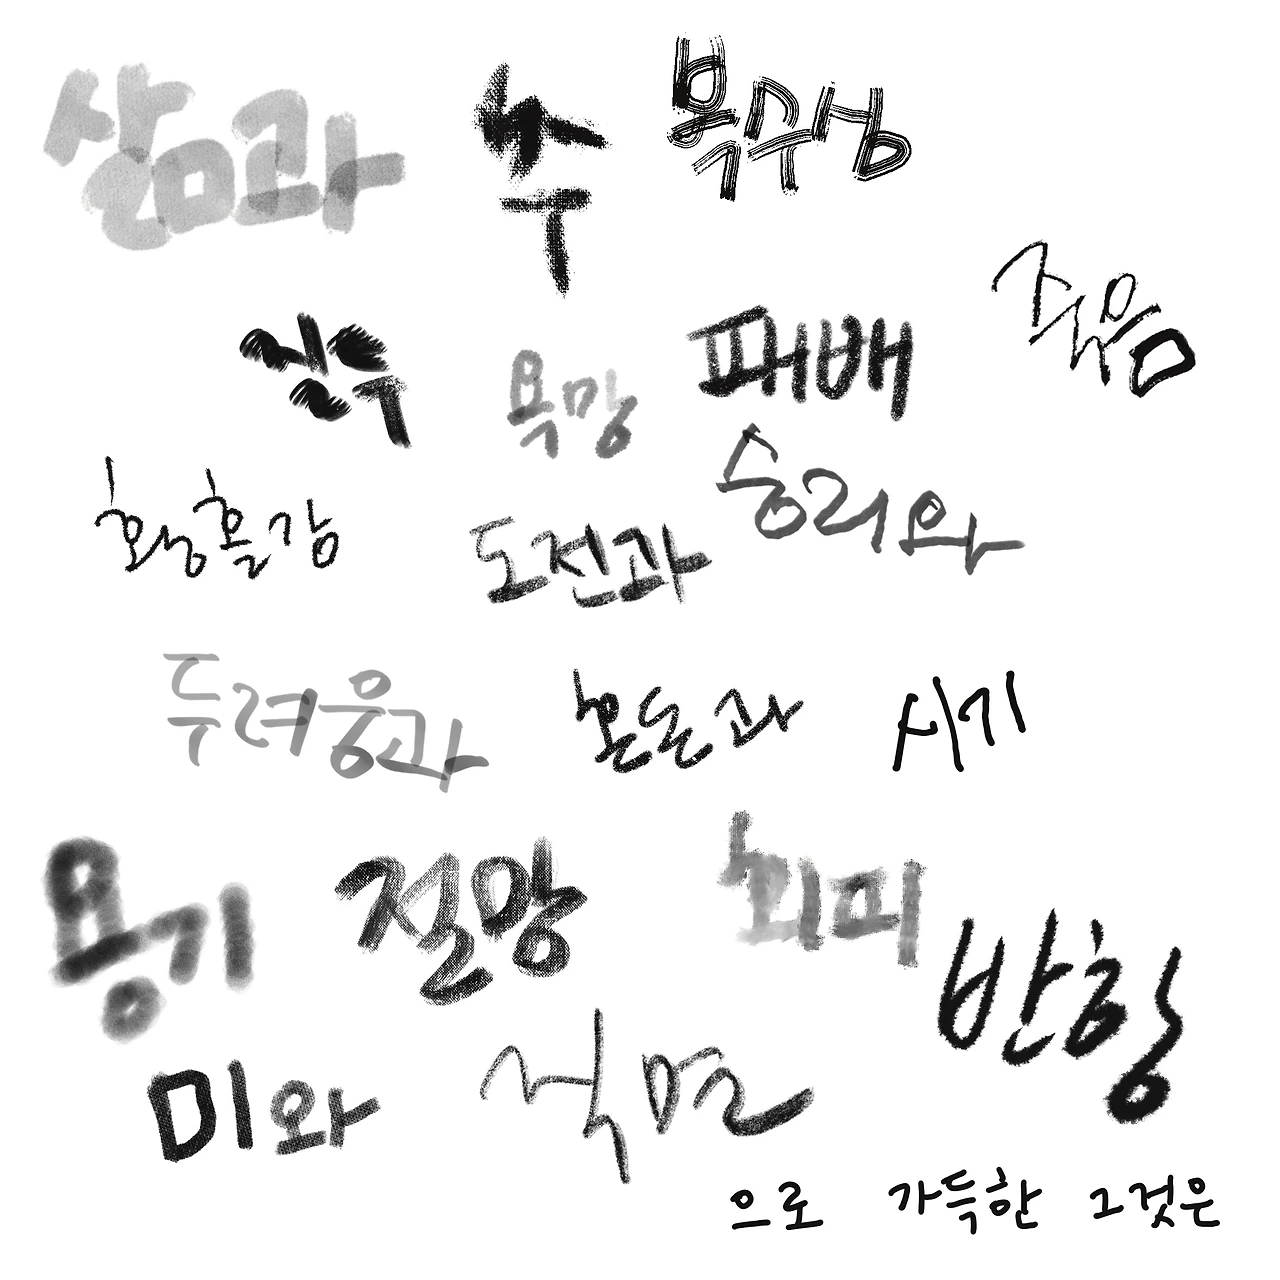 삶과
수
복수성
죽음
욕망
패배
황홀감
도전과
승리와
두려움과
혼돈과
시기
용기
절망
회피
반항
미와
직면
으로 가득한 그것은